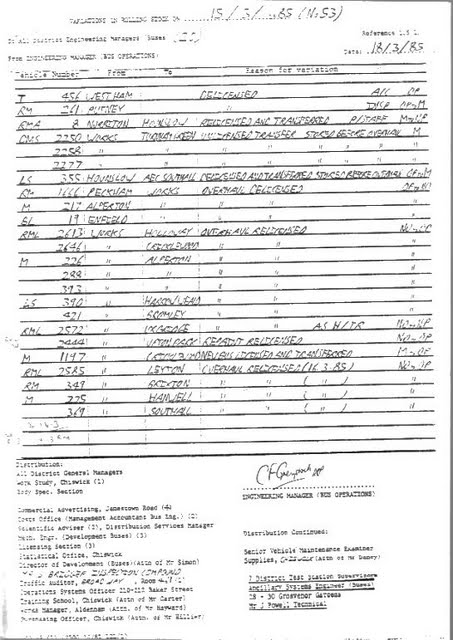 VARIATIONS IN ROLLING STOCK ON 15/3/85 (No.53)
To All District Engineering Managers (Buses) (20)
Reference 1.5.1.
From ENGINEERING MANAGER (BUS OPERATIONS)
Date: 18/3/85
Vehicle Number From To Reason for variation
T 456 WEST HAM DELICENSED
RM 261 PUTNEY "
RMA 8 NORBITON HOUNSLOW DELICENSED AND TRANSFERRED
DMS 2250 WORKS TURNHAM GREEN UNLICENSED TRANSFER STORED BEFORE OVERHAUL M
2258 " " " " " " "
2277 " " " " " " "
LS 355 HOUNSLOW AEC SOUTHALL DELICENSED AND TRANSFERRED STORED BEFORE OVERHAUL
RM 1666 PECKHAM WORKS OVERHAUL DELICENSED
M 217 ALPERTON " " "
BL 19 ENFIELD " " "
RML 2613 WORKS HOLLOWAY OVERHAUL RELICENSED
2646 " CRICKLEWOOD " " "
M 226 " ALPERTON " " "
288 " " " " "
393 " " " " "
LS 390 " HARROW WEALD " " "
421 " BROMLEY " " "
RML 2572 " UXBRIDGE " " AS H/TR
2444 " UPTON PARK REPAINT RELICENSED
M 1147 " CRICKLEWOOD NEW BUS LICENSED AND TRANSFERRED
RML 2585 " LEYTON OVERHAUL RELICENSED (16.3.85)
RM 349 " BRIXTON " " ( " )
M 275 " HANWELL " " ( " )
369 " SOUTHALL " " ( " )
Distribution:
All District General Managers
Work Study, Chiswick (1)
Body Spec. Section
ENGINEERING MANAGER (BUS OPERATIONS)
Commercial Advertising, Jamestown Road
Costs Office (Management Accountant Bus Eng.) (2)
Scientific Adviser (2), Distribution Services Manager
Mech. Engr. (Development Buses) (3)
Licensing Section (3)
Statistical Office, Chiswick
Director of Development (Buses) (Attn of Mr Simon)
Traffic Auditor, BROADWAY, Room
Operations Systems Officer 210-212 Baker Street
Training School, Chiswick (Attn of Mr Carter)
Works Manager, Aldenham (Attn. of Mr Hayward)
Purchasing Officer, Chiswick (Attn. of Mr Hillier)
Distribution Continued:
Senior Vehicle Maintenance Examiner
Supplies, (Attn of Mr Daney)
7 District Test Station Supervisors
Ancillary Systems Engineer (Buses)
28 - 30 Grosvenor Gardens
Mr J Powell Technical